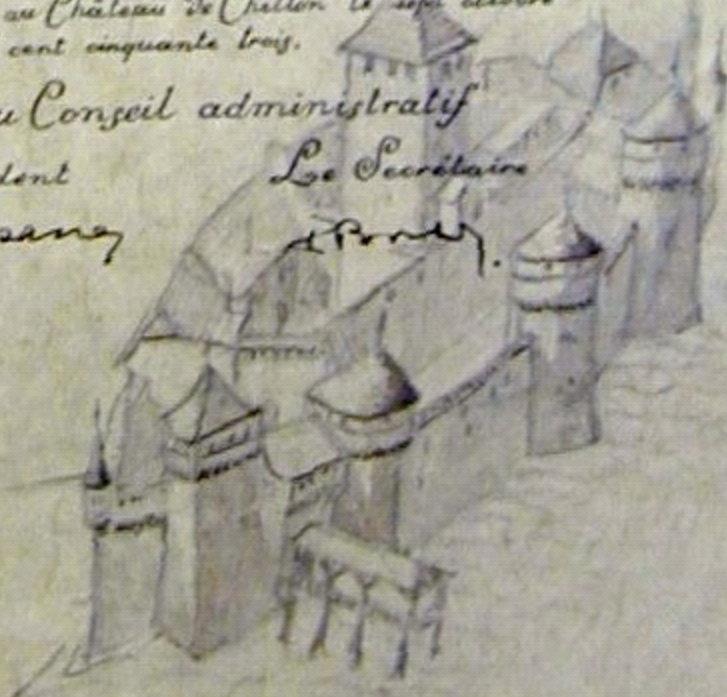 au Château de Chillon le sept octobre
cent cinquante trois.
u Conseil administratif
dent
Le Secrétaire